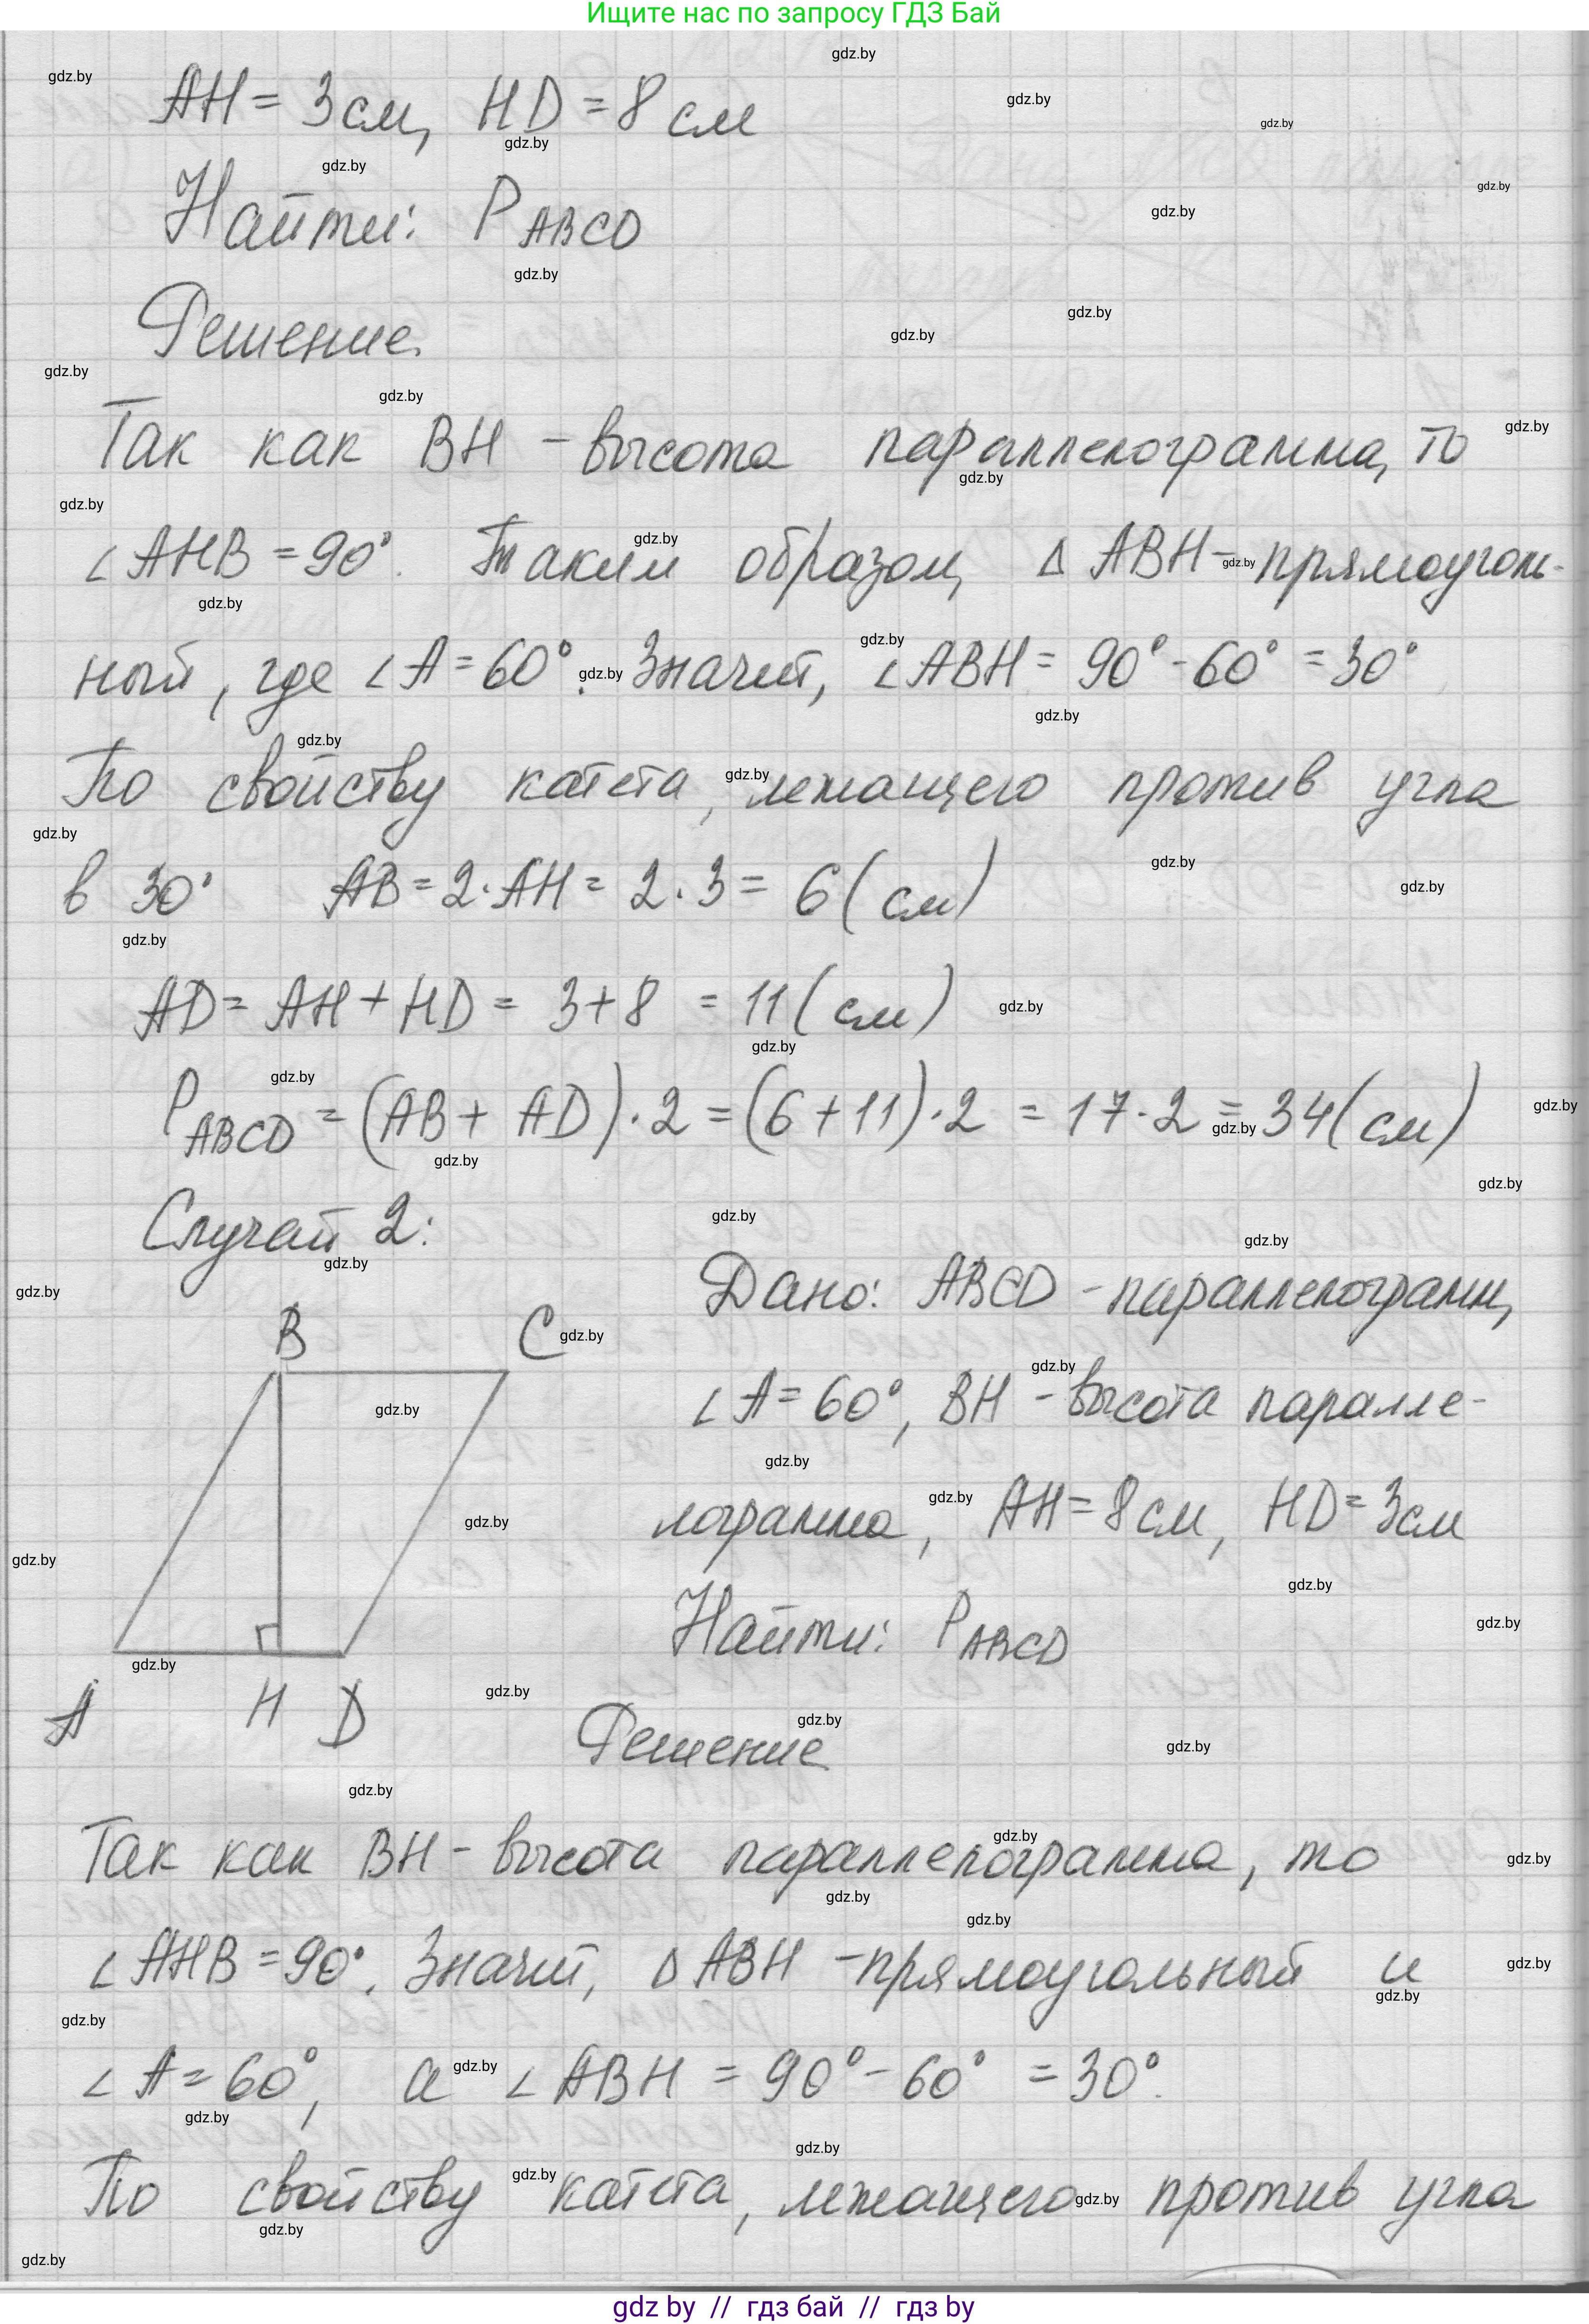 Ищите нас по запросу ГДЗ Бай
AH = 3 см, HD = 8 см
Найти: P ABCD
Решение.
Так как BH – высота параллелограмма, то
∠AHB = 90°. Таким образом, △ABH – прямоуголь-
ный, где ∠A = 60°. Значит, ∠ABH = 90° - 60° = 30°
По свойству катета, лежащего против угла
в 30° AB = 2·AH = 2·3 = 6 (см)
AD = AH + HD = 3 + 8 = 11 (см)
P ABCD = (AB + AD)·2 = (6 + 11)·2 = 17·2 = 34 (см)
Случай 2:
Дано: ABCD – параллелограмм,
∠A = 60°, BH – высота паралле-
лограмма, AH = 8 см, HD = 3 см
Найти: P ABCD
B C
A H D
Решение
Так как BH – высота параллелограмма, то
∠AHB = 90°. Значит, △ABH – прямоугольный и
∠A = 60°, а ∠ABH = 90° - 60° = 30°.
По свойству катета, лежащего против угла
gdz by // гдз бай // гдз by